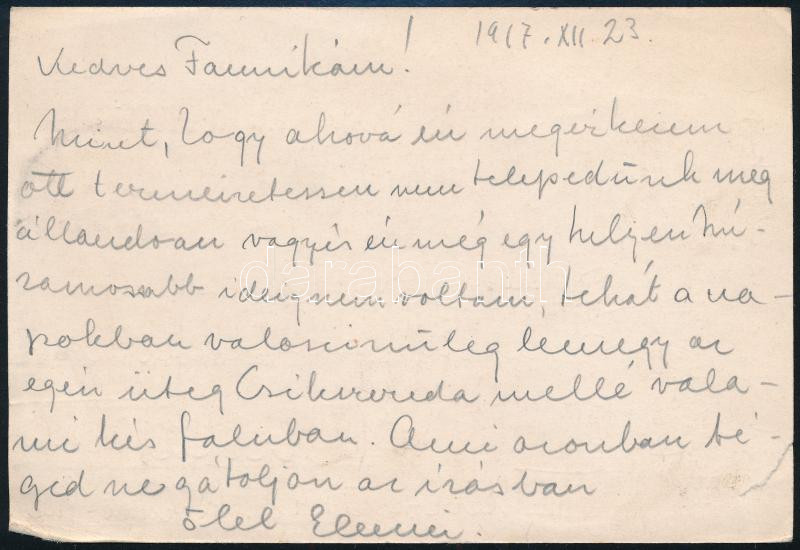 1917. XII. 23.
Kedves Fannikám!
Mint, hogy ahová én megérkezem
ott termeiretessen nem telepedünk meg
állandoan vagyis én még egy helyen hu-
zamossabb ideig nem voltam, tehát a na-
pokban valoscinüleg lemegy az
egén üteg Csikszereda mellé vala-
mi kis faluban. Ami azonban té-
ged ne gátoljon az irásban
ölel
darabanth